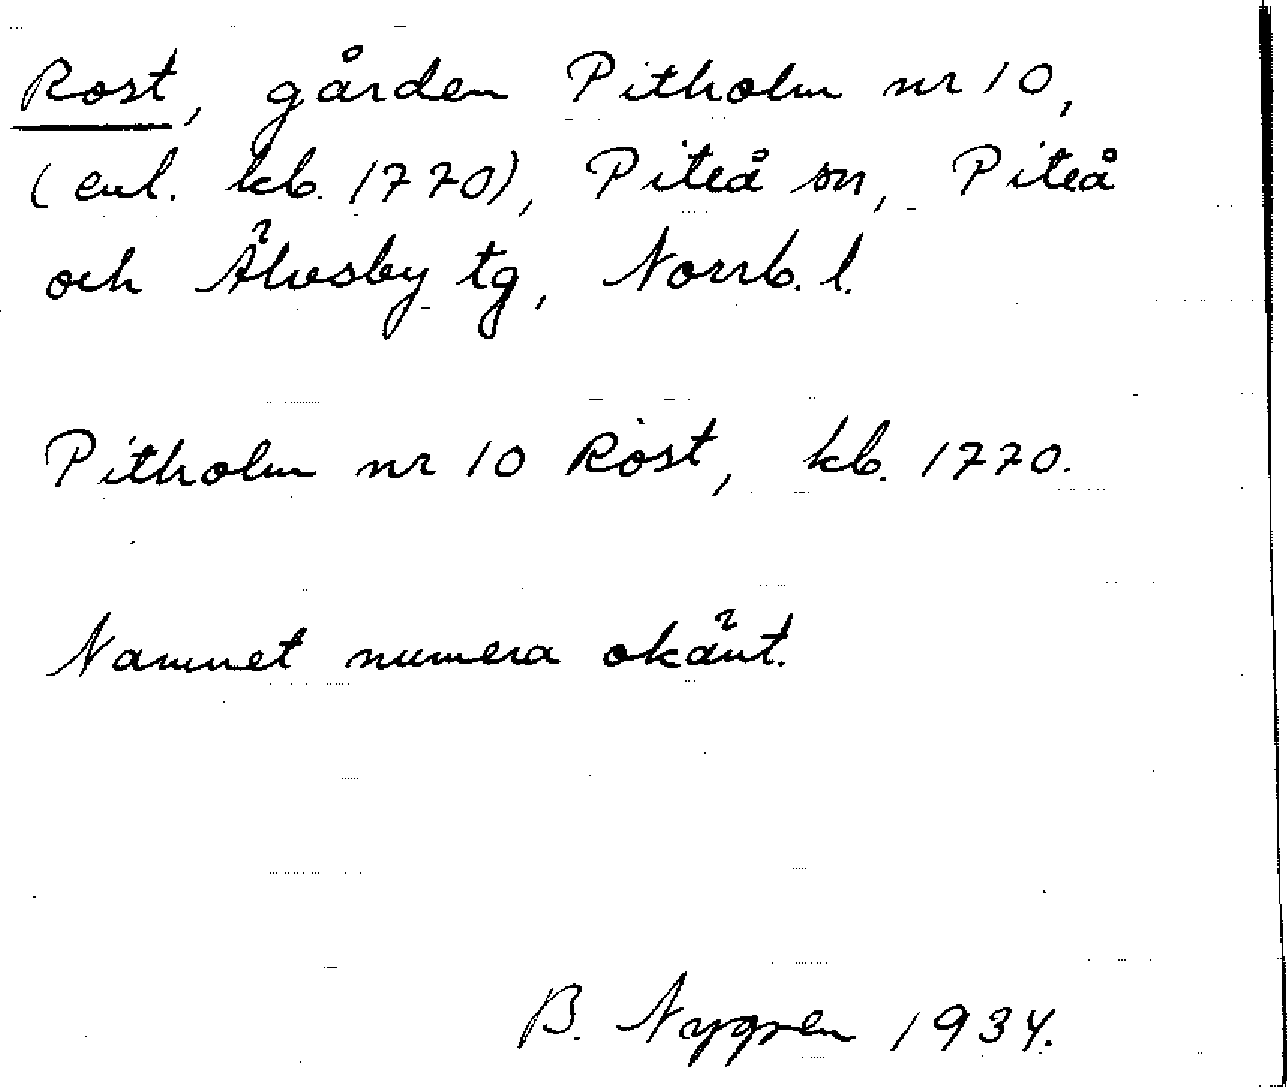 Rost, gården Pitholm nr 10,
(enl. kb. 1770), Piteå sn, Piteå
och Älvsby tg, Norrb. l.
Pitholm nr 10 Rost, kb. 1770.
Namnet numera okänt.
B. Nygren 1934.